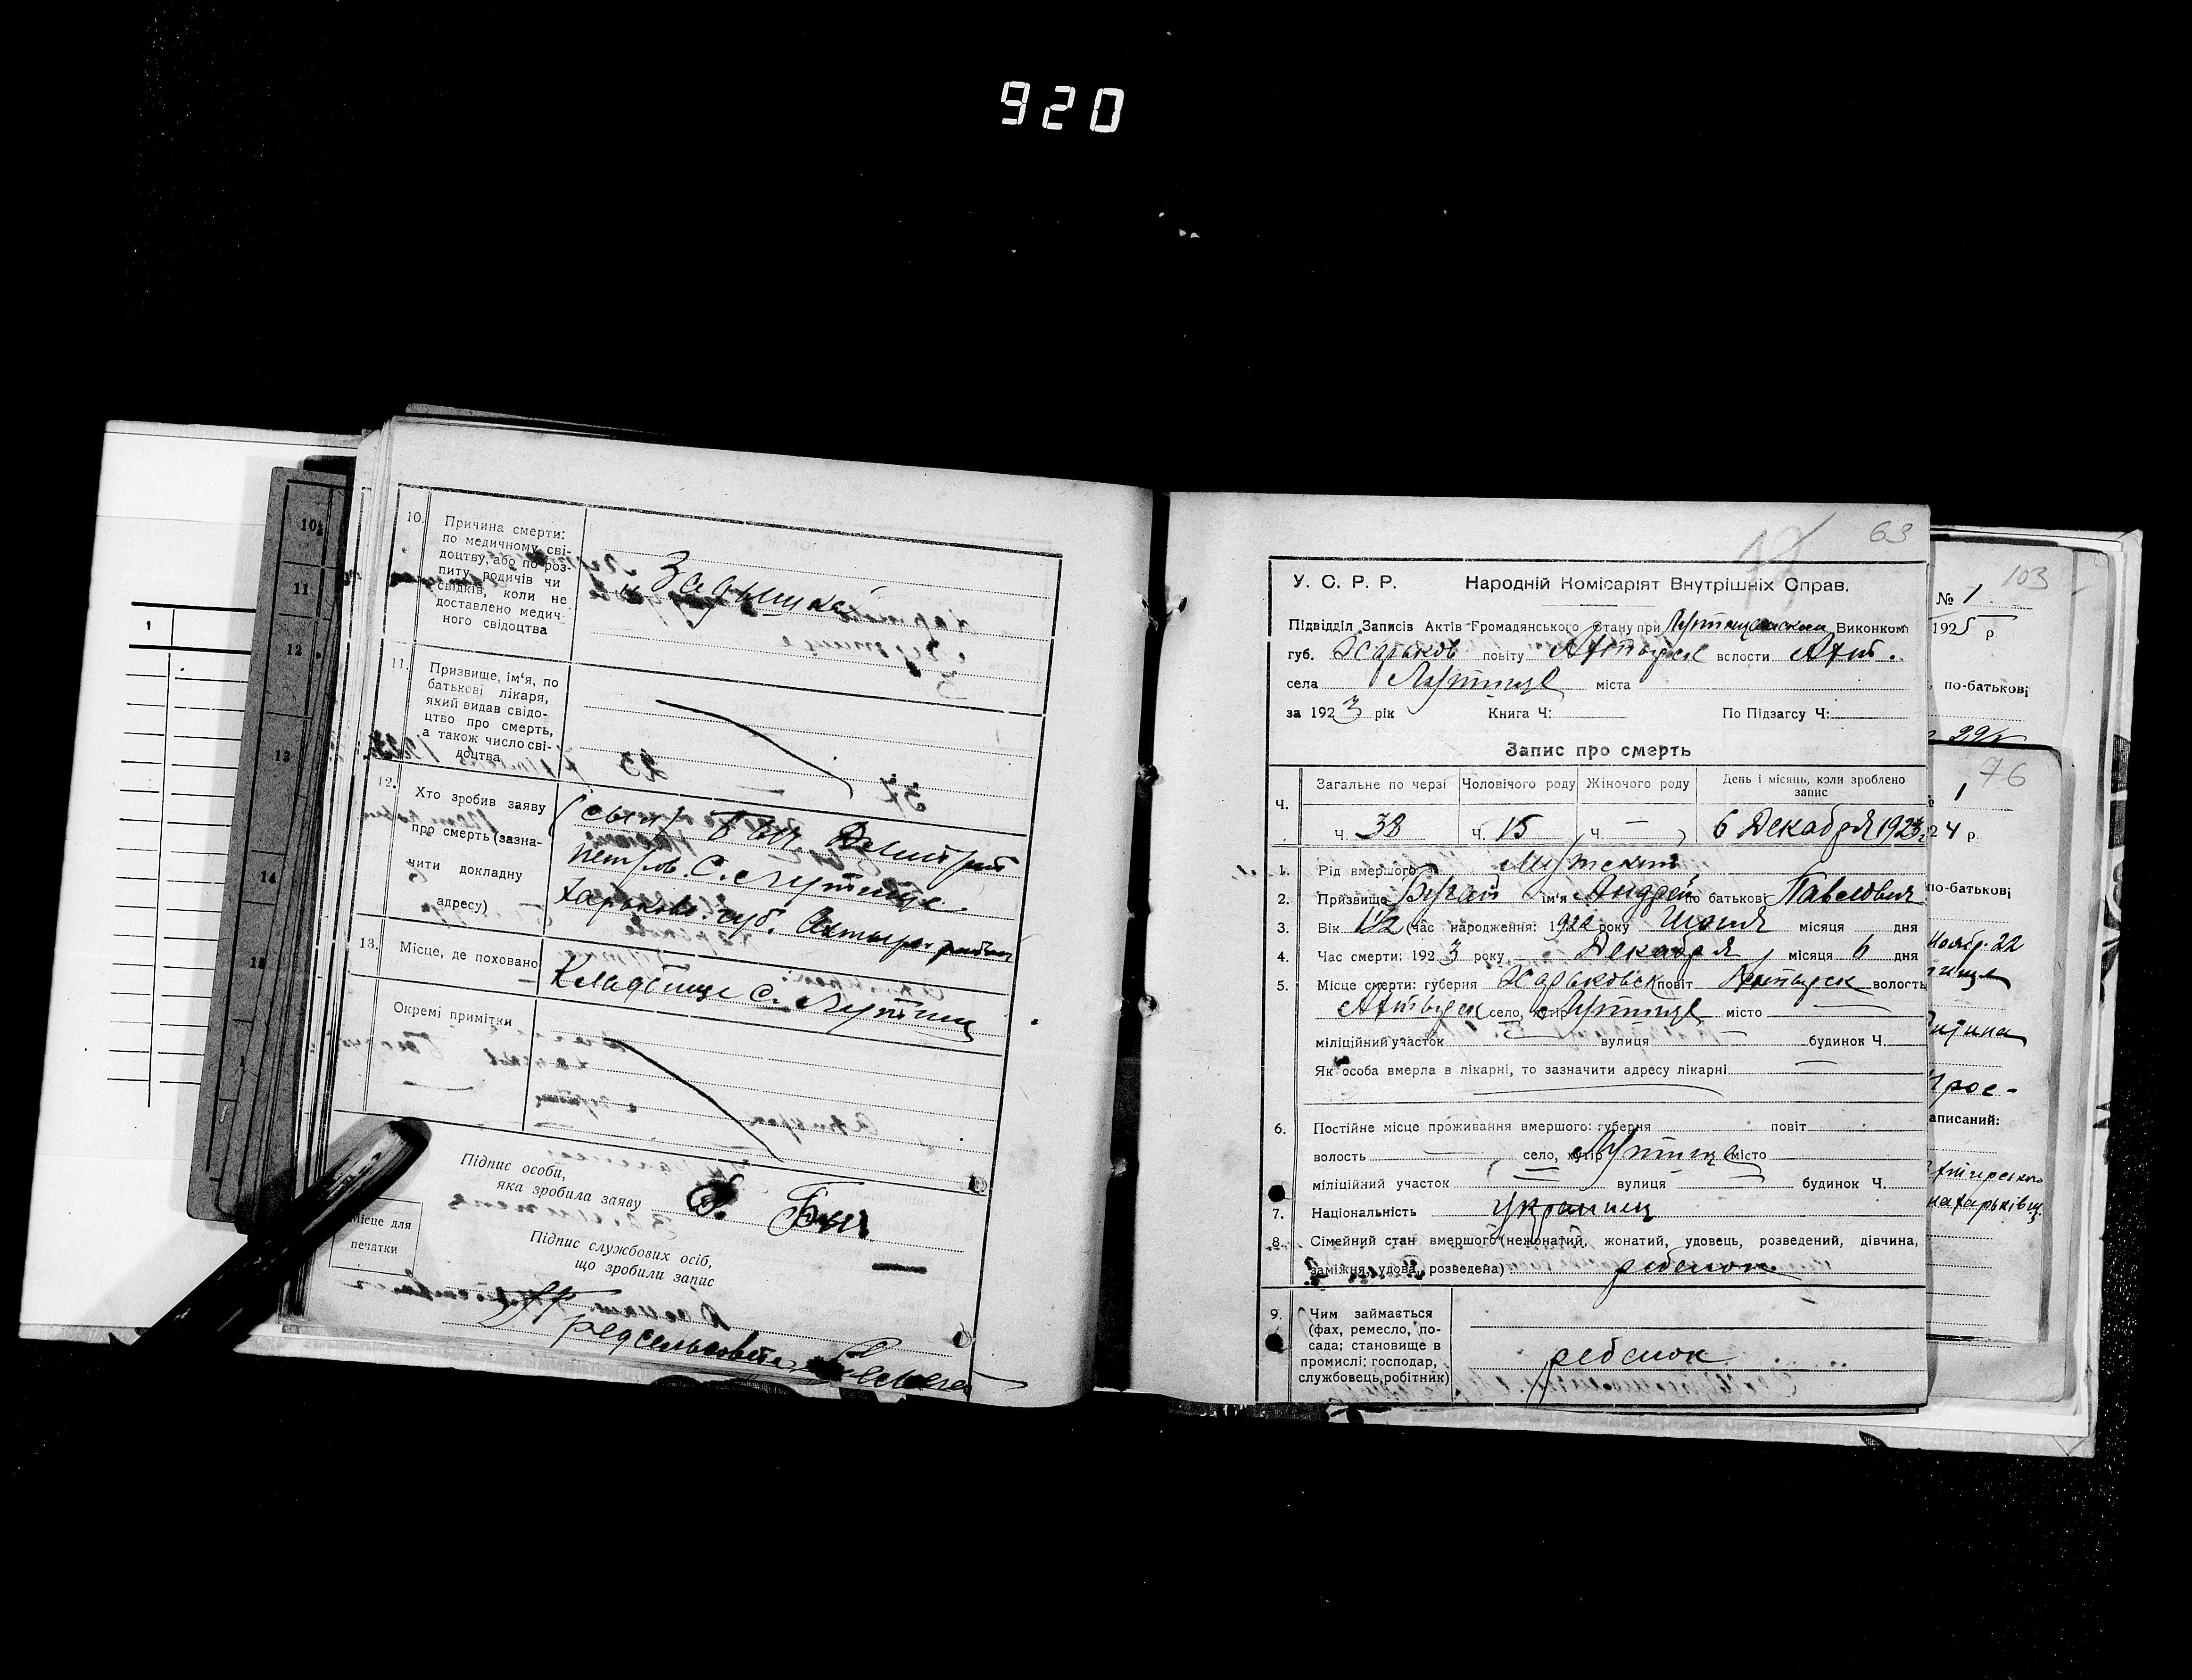 920
10.
Причина смерти:
по медичному сві-
доцтву, або по роз-
питу родичів чи
свідків, коли не
доставлено медич-
ного свідоцтва
11.
Призвище, ім'я, по
батькові лікаря,
який видав свідо-
цтво про смерть,
а також число сві-
доцтва
12.
Хто зробив заяву
про смерть (зазна-
чити докладну
адресу)
(сын)
Петров. С. Лутище
Харьков. губ. Ахтыр.
13.
Місце, де поховано
Кладбище с. Лутище
Окремі примітки
Підпис особи,
яка зробила заяву
Місце для
печатки
Підпис службових осіб,
що зробили запис
Предсельсовета
10
11
12
13
14
15
1
63
У. С. Р. Р. Народній Комісаріят Внутрішніх Справ.
Підвідділ Записів Актів Громадянського Стану при Лутищанском Виконком
губ. Харьков повіту Ахтырск вслости Ахт.
села Лутище міста
за 1923 рік Книга Ч: По Підзагсу Ч:
Запис про смерть
Ч.
Загальне по черзі Чоловічого роду Жіночого роду День і місяць, коли зроблено
запис
ч. 38 ч. 15 ч — 6 Декабря 1923
1. Рід вмершого Мужский
2. Призвище Бугай ім'я Андрей по батькові Павлович
3. Вік 1 1/2 (час народження: 1922 року Июня місяця дня
4. Час смерти: 1923 року Декабря місяця 6 дня
5. Місце смерти: губерня Харьковск повіт Ахтырск волость
Ахтырск село, хутір Лутище місто
міліційний участок вулиця будинок Ч.
Як особа вмерла в лікарні, то зазначити адресу лікарні
6. Постійне місце проживання вмершого: губерня повіт
волость село, хутір Лутище місто
міліційний участок вулиця будинок Ч.
7. Національність украинец
8. Сімейний стан вмершого (нежонатий, жонатий, удовець, розведений, дівчина,
заміжня, удова, розведена) ребенок
9. Чим займається
(фах, ремесло, по-
сада; становище в
промислі: господар,
службовець, робітник)
ребенок
103
№ 1
1925 р.
по-батькові
76
1
24 р.
по-батькові
Ноябр. 22
аписаний: